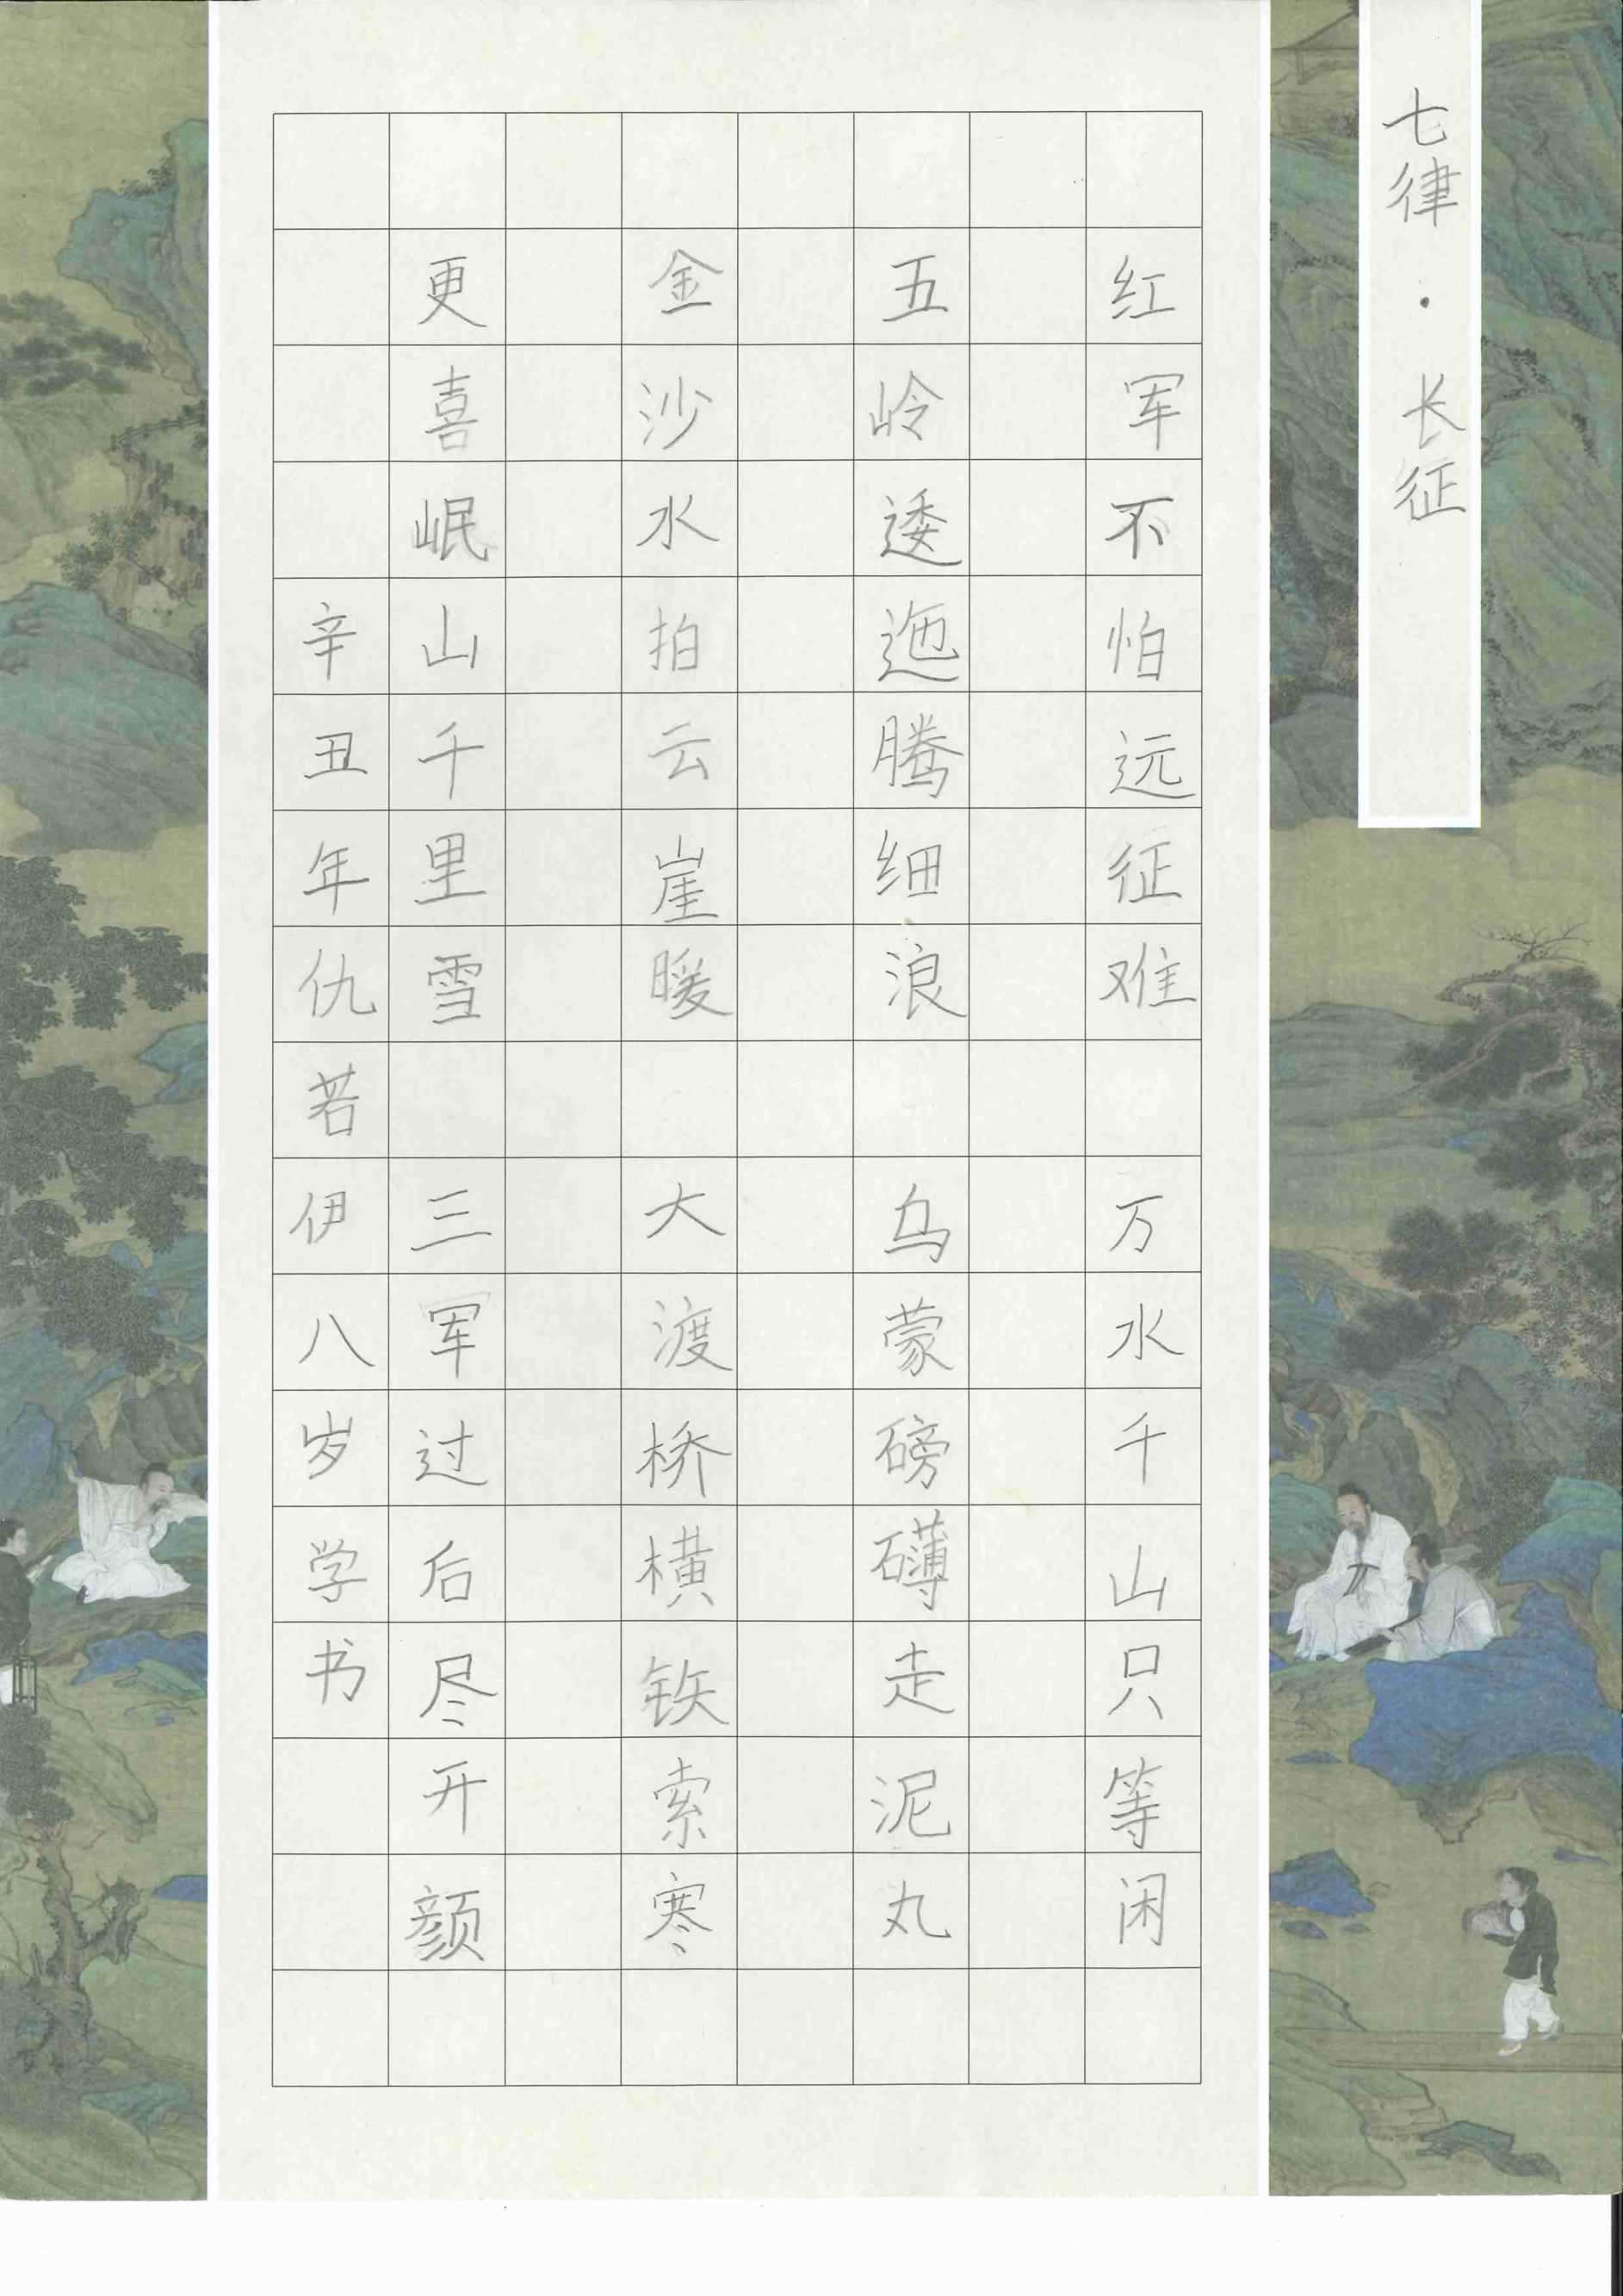 七律·长征
红军不怕远征难 万水千山只等闲
五岭逶迤腾细浪 乌蒙磅礴走泥丸
金沙水拍云崖暖 大渡桥横铁索寒
更喜岷山千里雪 三军过后尽开颜
辛丑年仇若伊八岁学书